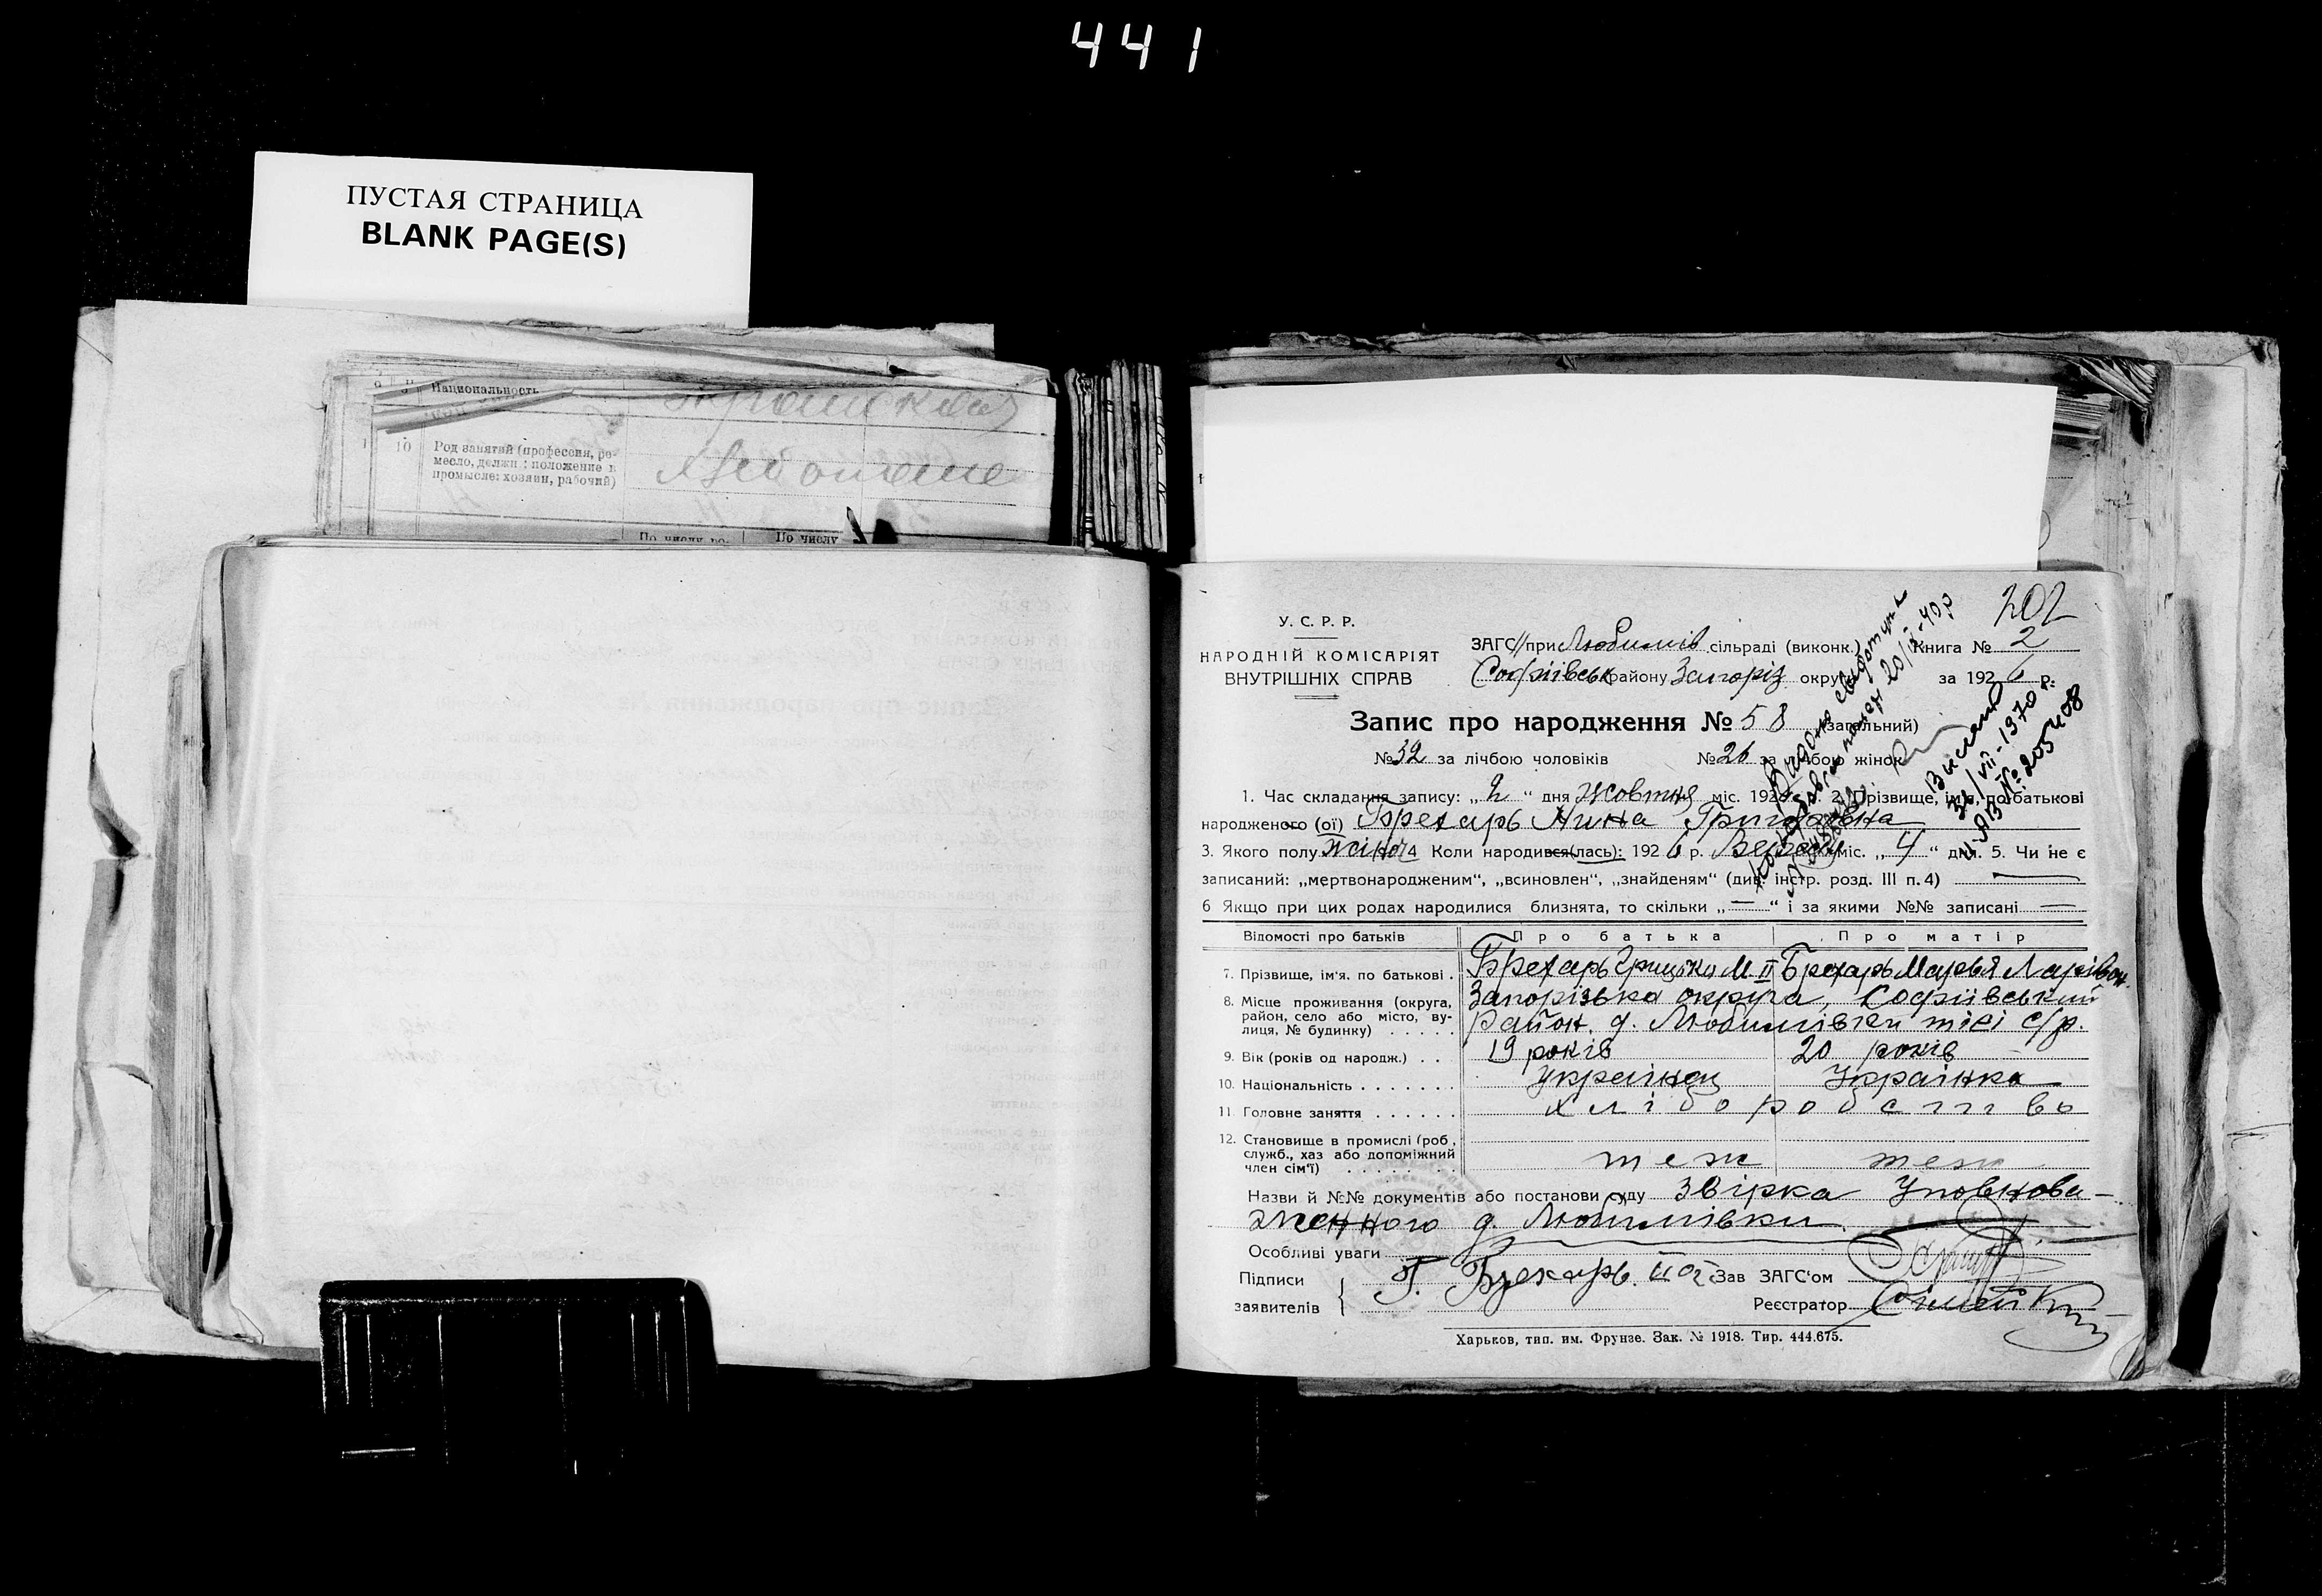 441
ПУСТАЯ СТРАНИЦА
BLANK PAGE(S)
9 Национальность
10 Род занятий (профессия, ре-
месло, должн: положение в
промысле: хозяин, рабочий)
По числу ро- По числу
202
У. С. Р. Р.
НАРОДНІЙ КОМІСАРІЯТ
ВНУТРІШНІХ СПРАВ
ЗАГС при Любимів сільраді (виконк.) Книга № 2
Софіївськ району Запоріз округи за 1926 р.
Запис про народження № 58 (загальний)
№ 32 за лічбою чоловіків № 26 за лічбою жінок
Видано свидотцтв
20/IX-40р
Вислано
31/VII-1970 г.
II-АВ № 205408
1. Час складання запису: „2“ дня жовтня міс. 192 р. 2. Прізвище, ім'я, по батькові
народженого (ої) Брехарь Нина Григоровна
3. Якого полу жіноч 4 Коли народився(лась): 1926 р. Вересня міс. „4“ дня. 5. Чи не є
записаний: „мертвонародженим“, „всиновлен“, „знайденям“ (див. інстр. розд. III п. 4) —
6 Якщо при цих родах народилися близнята, то скільки „—“ і за якими №№ записані —
Відомості про батьків Про батька Про матір
7. Прізвище, ім'я. по батькові . Брехарь Грицько М. II Брехарь Марья Ларівон.
8. Місце проживання (округа, район, село або місто, ву-лиця, № будинку) . . . . . Запорізька округа, Софіївський
район. д. Любимівки тієі с/р.
9. Вік (років од народж.) . . 19 років 20 років
10. Національність . . . . . . . Українец Українка
11. Головне заняття . . . . . . хліборобство
12. Становище в промислі (роб., служб., хаз або допоміжний член сім'ї) . . . . . . . . теж теж
Назви й №№ документів або постанови суду Звірка Уповнова-
женного д. Любимівки.
Особливі уваги
Підписи Г. Брехарь. II Зав ЗАГС'ом
заявителів Реєстратор
Харьков, тип. им. Фрунзе. Зак. № 1918. Тир. 444.675.